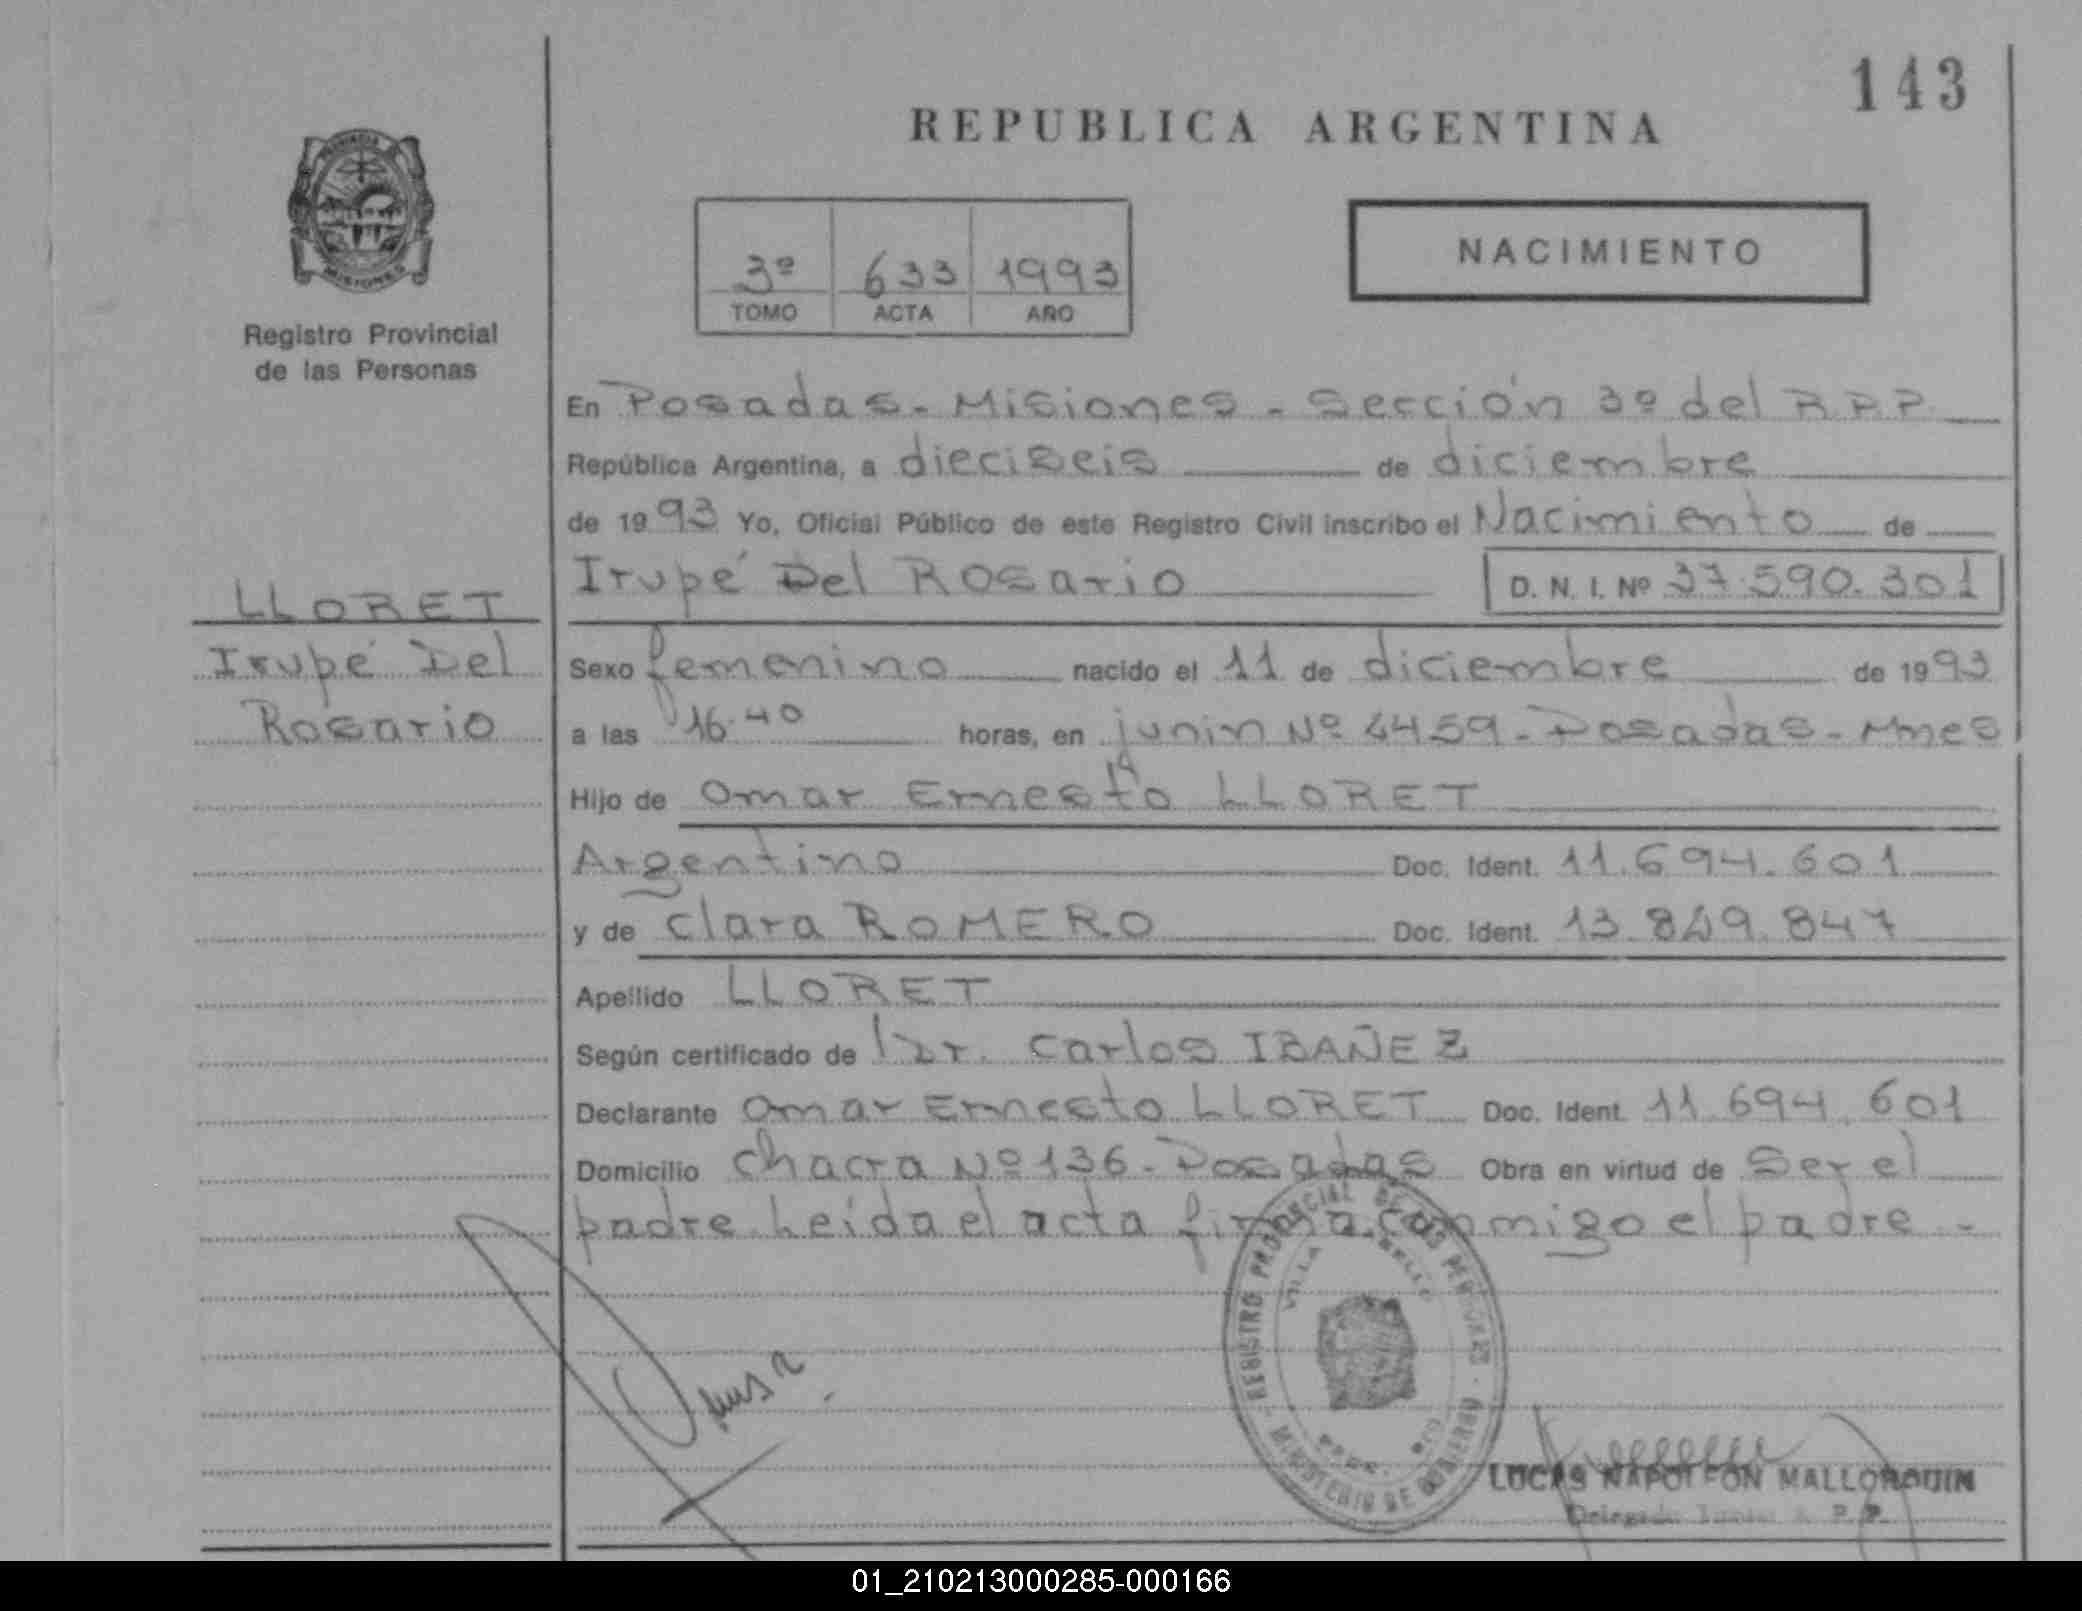 143
REPUBLICA ARGENTINA
PROVINCIA
MISIONES
Registro Provincial
de las Personas
3º 633 1993
TOMO ACTA AÑO
NACIMIENTO
En Posadas - Misiones - Sección 3º del R.P.P.
República Argentina, a dieciseis de diciembre
de 1993 Yo, Oficial Público de este Registro Civil inscribo el Nacimiento de
Irupé Del Rosario D. N. I. Nº 37.590.301
LLORET
Irupé Del
Rosario
Sexo femenino nacido el 11 de diciembre de 1993
a las 16.40 horas, en junin Nº 4459 - Posadas - Mnes
Hijo de Omar Ernesto LLORET
Argentino Doc. Ident. 11.694.601
y de Clara ROMERO Doc. Ident. 13.849.847
Apellido LLORET
Según certificado de Dr. Carlos IBAÑEZ
Declarante Omar Ernesto LLORET Doc. Ident. 11.694.601
Domicilio Chacra Nº 136 - Posadas Obra en virtud de Ser el
padre. Leída el acta firma conmigo el padre -
REGISTRO PROVINCIAL DE LAS PERSONAS
VILLA
MINISTERIO DE GOBIERNO
LUCAS NAPOLEON MALLORQUIN
01_210213000285-000166